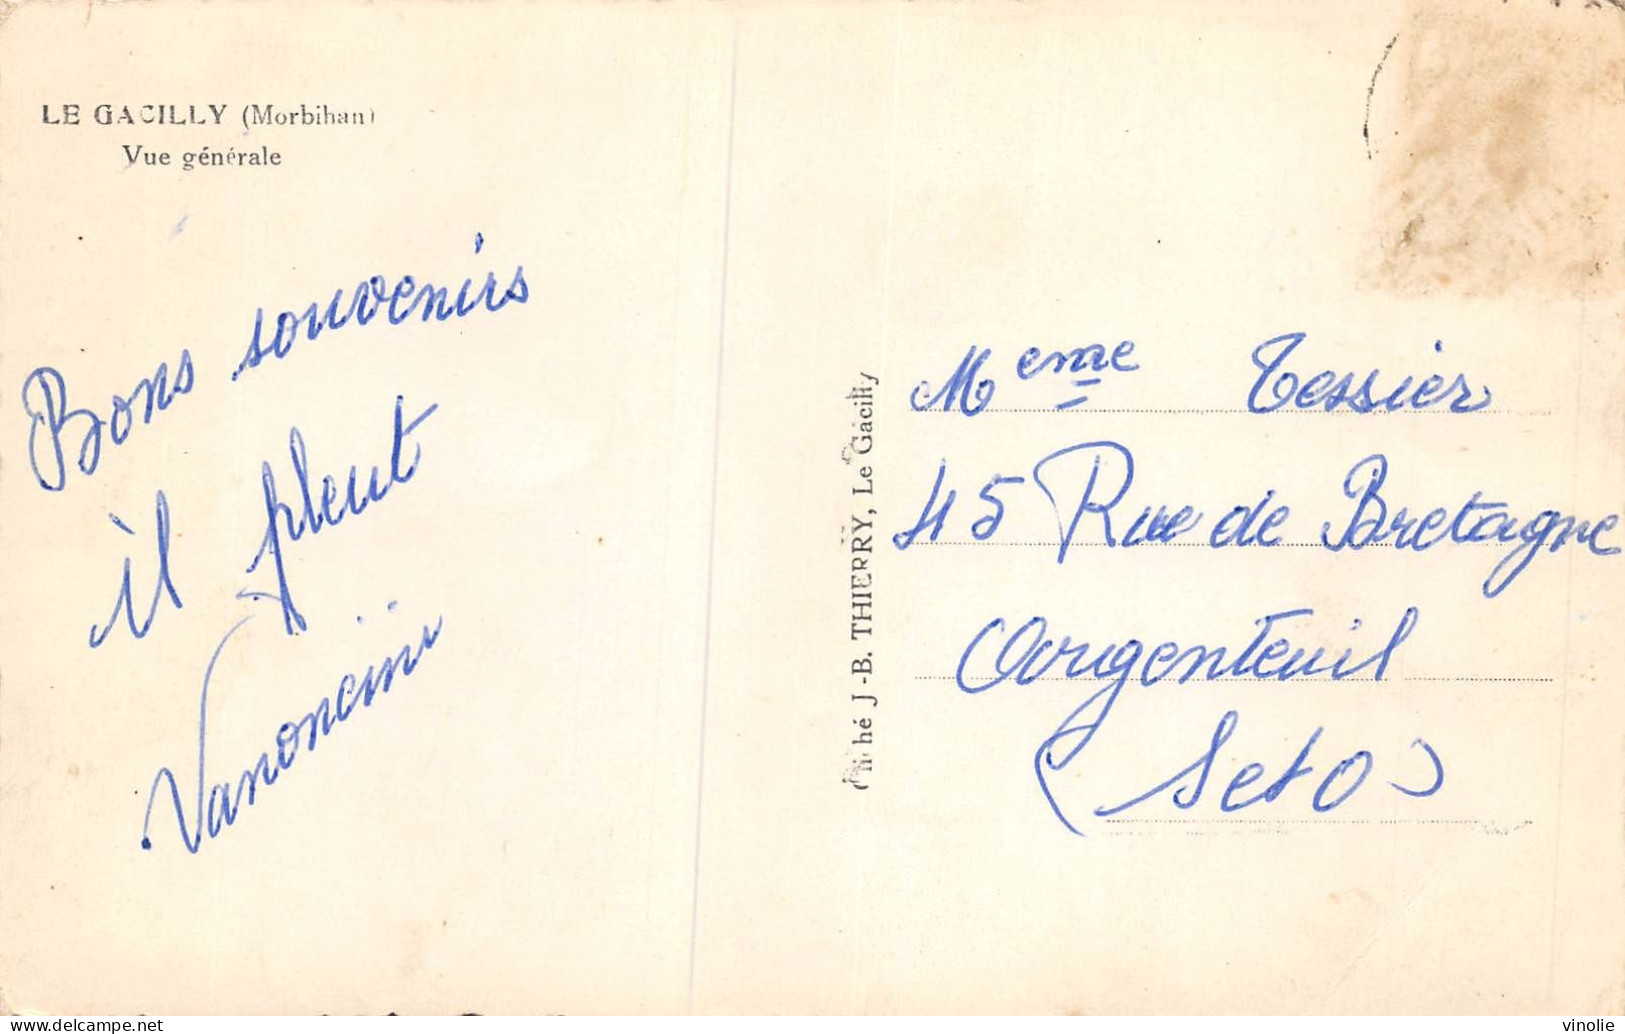 LE GACILLY (Morbihan)
Vue générale
Bons souvenirs
il pleut
Vanoncini
Cliché J.-B. THIERRY, Le Gacilly
Meme Tessier
45 Rue de Bretagne
Argenteuil
(SetO)
delcampe.net
vinolie